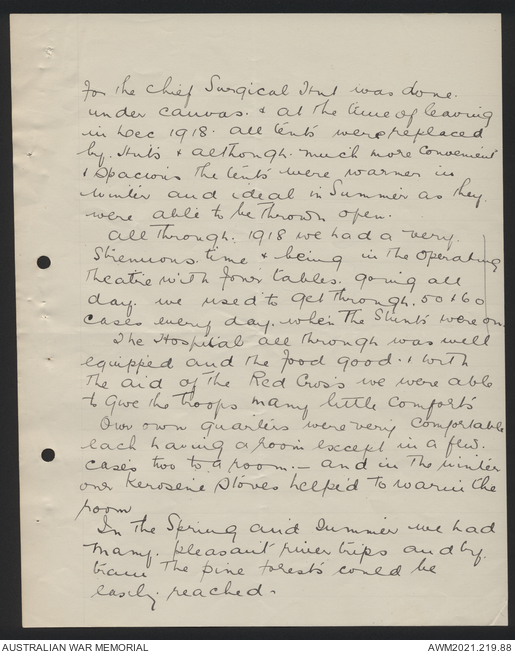 For the chief Surgical Hut was done.
under canvas. & at the time of leaving
in Dec 1918. all tents were replaced
by. Huts & although. much more convenient
& Spacious the tents were warmer in
winter and ideal in Summer as they.
were able to be thrown open.
all through. 1918 we had a very.
Strenuous. time & being in the operating
theatre with four tables. going all
day. we used to get through. 50 & 60
cases every day. when the Stunts were on.
The Hospital all through was well
equipped and the food good. & with
the aid of the Red Cross we were able
to give the troops many little comforts
Our own quarters were very comfortable
each having a room except in a few.
cases two to a room. — and in the winter
our Kerosene Stoves helped to warm the
room
In the Spring and Summer we had
many. pleasant river trips and by.
tram the pine forests could be
easily reached.
AUSTRALIAN WAR MEMORIAL
AWM2021.219.88